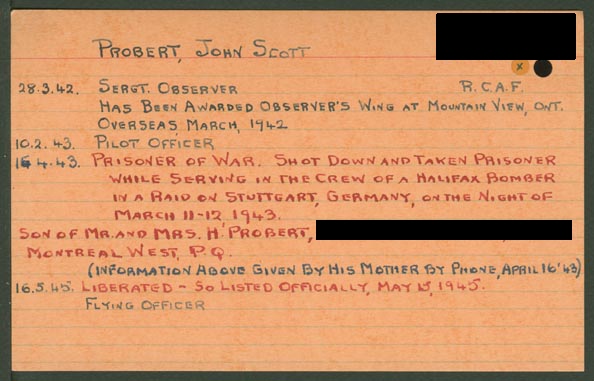 PROBERT, JOHN SCOTT
X
28.3.42. SERGT. OBSERVER R.C.A.F.
HAS BEEN AWARDED OBSERVER'S WING AT MOUNTAIN VIEW, ONT.
OVERSEAS, MARCH, 1942
10.2.43. PILOT OFFICER
16.4.43. PRISONER OF WAR. SHOT DOWN AND TAKEN PRISONER
WHILE SERVING IN THE CREW OF A HALIFAX BOMBER
IN A RAID ON STUTTGART, GERMANY, ON THE NIGHT OF
MARCH 11-12, 1943.
SON OF MR. AND MRS. H. PROBERT,
MONTREAL WEST, P.Q.
(INFORMATION ABOVE GIVEN BY HIS MOTHER BY PHONE, APRIL 16'43)
16.5.45. LIBERATED - SO LISTED OFFICIALLY, MAY 15, 1945.
FLYING OFFICER